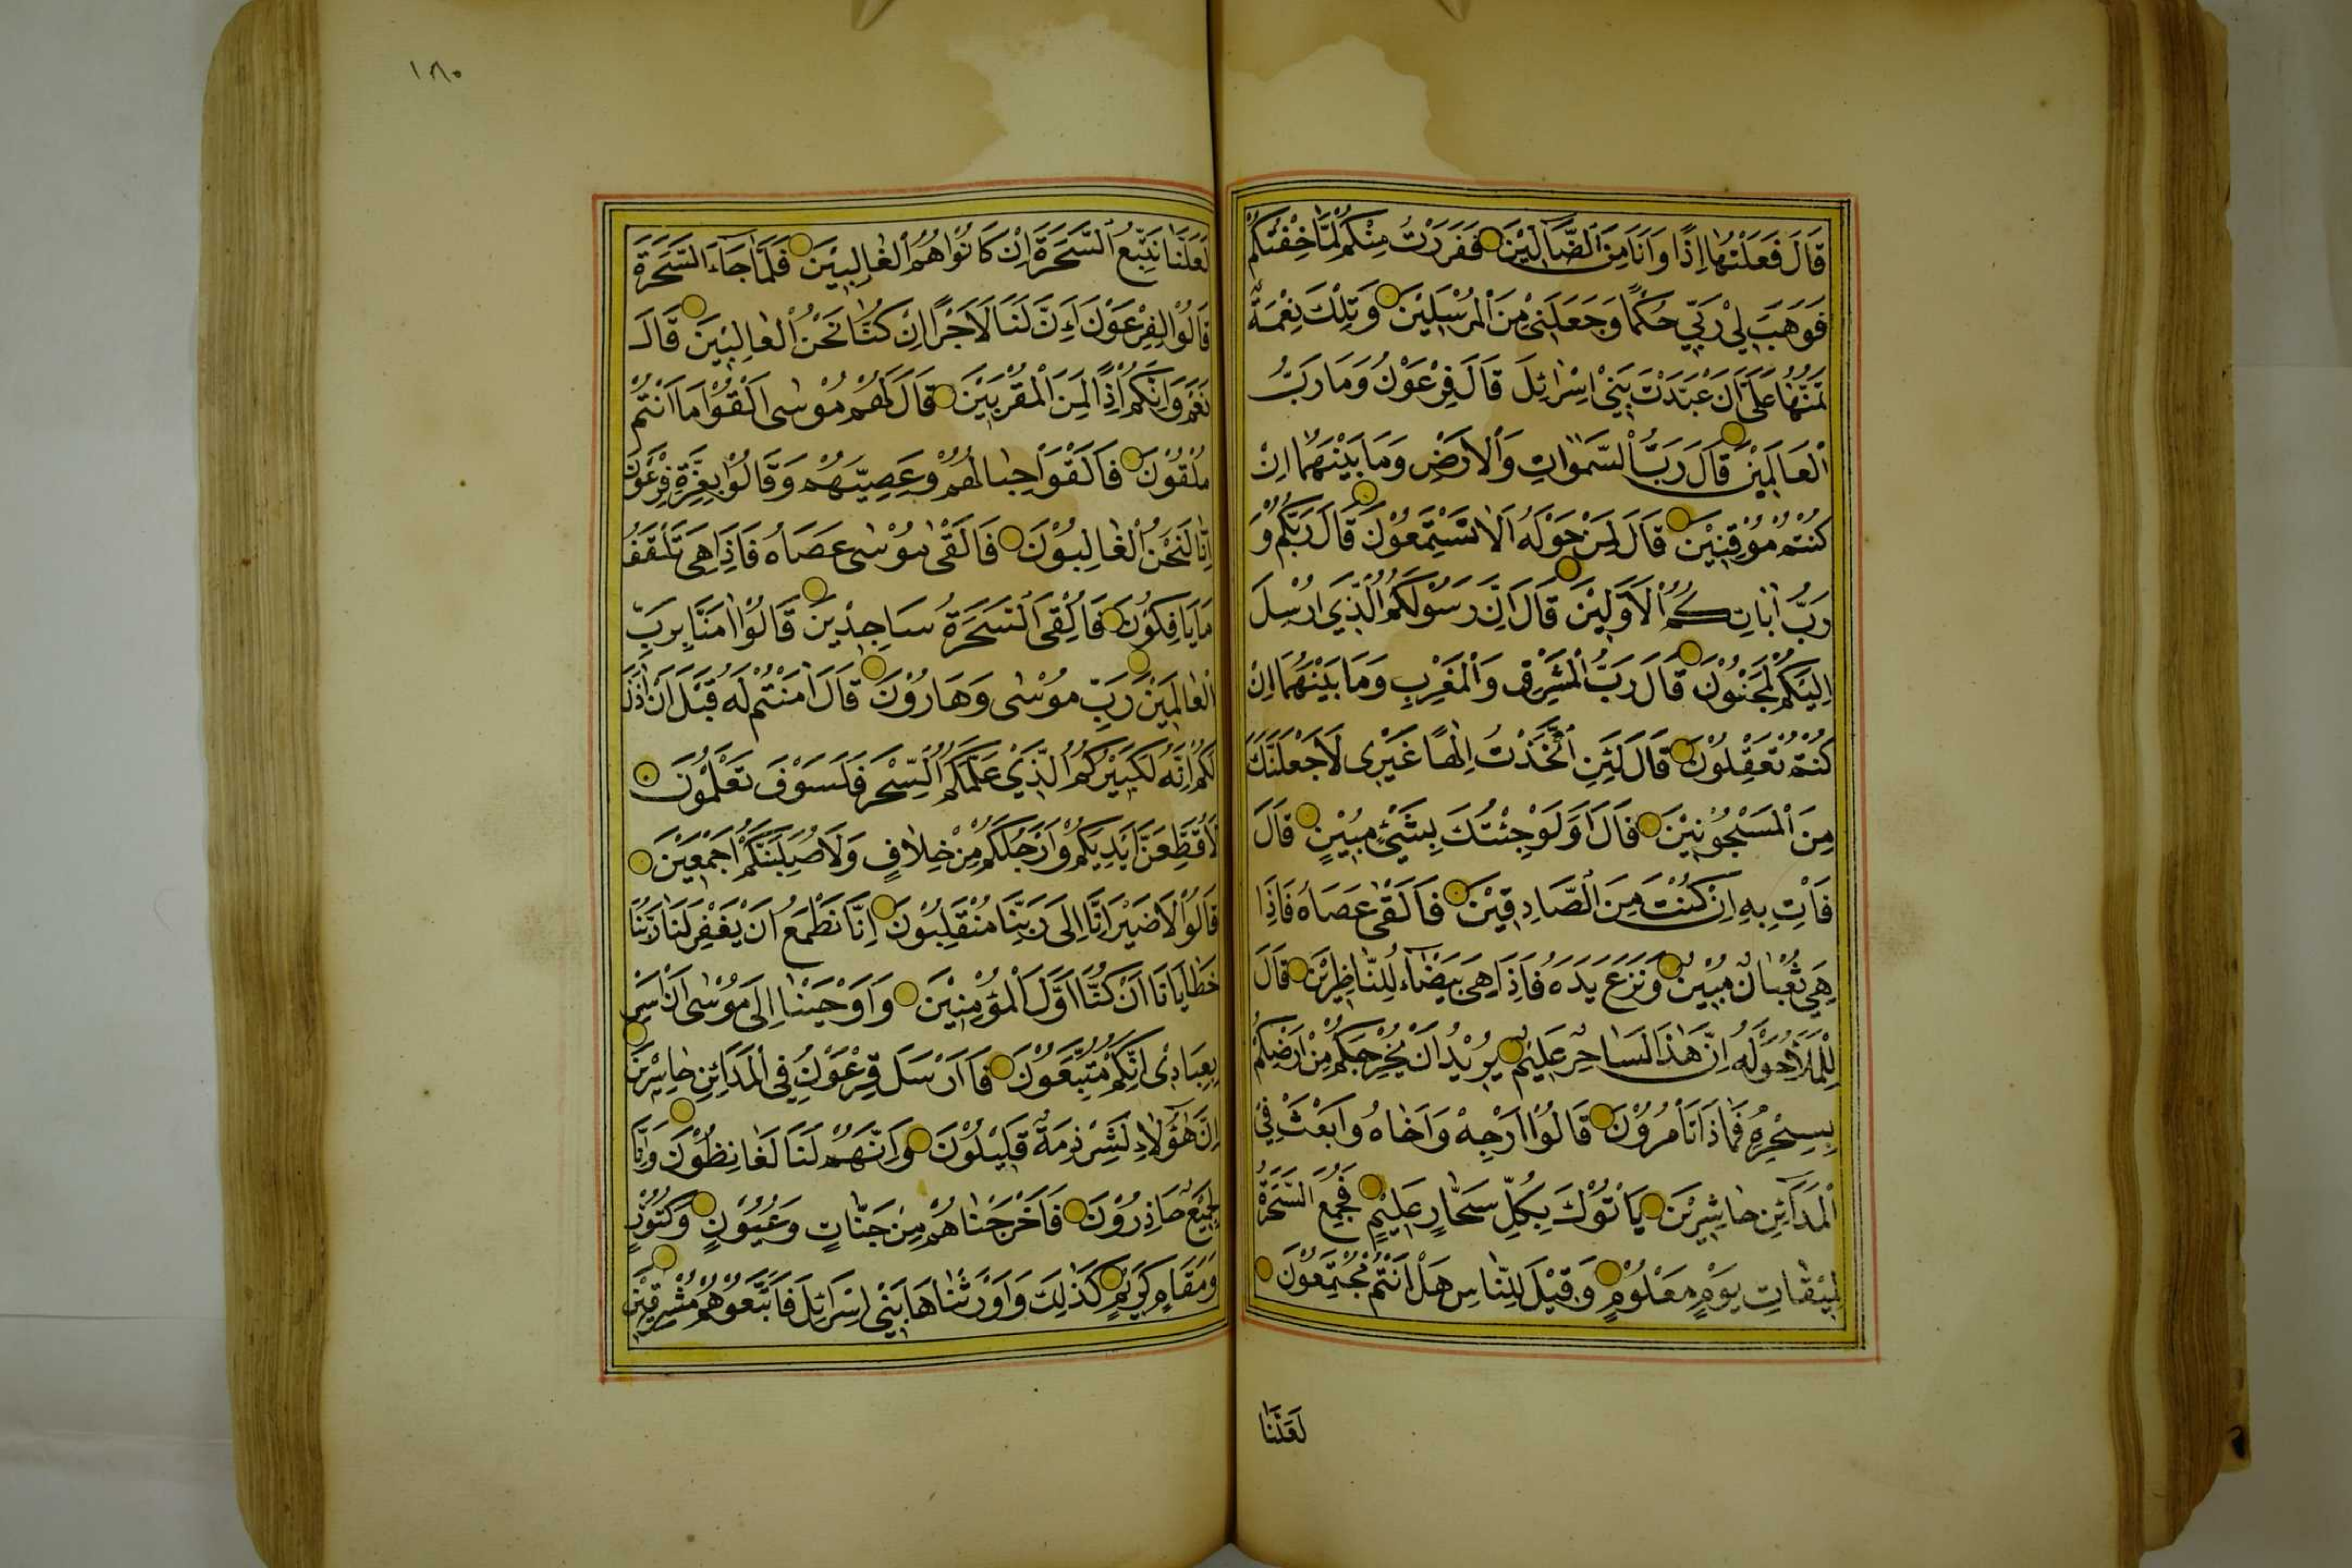 قَالَ فَعَلْتُهَا اِذًا وَاَنَا مِنَ الضَّآلّٖينَ فَفَرَرْتُ مِنْكُمْ لَمَّا خِفْتُكُمْ
فَوَهَبَ لِيْ رَبِّيْ حُكْمًا وَجَعَلَنِيْ مِنَ الْمُرْسَلِيْنَ وَتِلْكَ نِعْمَةٌ
تَمُنُّهَا عَلَيَّ اَنْ عَبَّدْتَ بَنِيْ اِسْرَائِلَ قَالَ فِرْعَوْنُ وَمَا رَبُّ
الْعَالَمِيْنَ قَالَ رَبُّ السَّمٰوَاتِ وَالْاَرْضِ وَمَا بَيْنَهُمَا اِنْ
كُنْتُمْ مُوْقِنِيْنَ قَالَ لِمَنْ حَوْلَهُ اَلَا تَسْتَمِعُوْنَ قَالَ رَبُّكُمْ وَ
رَبُّ اٰبَائِكُمُ الْاَوَّلِيْنَ قَالَ اِنَّ رَسُوْلَكُمُ الَّذِيْ اُرْسِلَ
اِلَيْكُمْ لَمَجْنُوْنٌ قَالَ رَبُّ الْمَشْرِقِ وَالْمَغْرِبِ وَمَا بَيْنَهُمَا اِنْ
كُنْتُمْ تَعْقِلُوْنَ قَالَ لَئِنِ اتَّخَذْتَ اِلٰهًا غَيْرِيْ لَاَجْعَلَنَّكَ
مِنَ الْمَسْجُوْنِيْنَ قَالَ اَوَلَوْ جِئْتُكَ بِشَيْئٍ مُبِيْنٍ قَالَ
فَأْتِ بِهِ اِنْ كُنْتَ مِنَ الصَّادِقِيْنَ فَاَلْقٰى عَصَاهُ فَاِذَا
هِيَ ثُعْبَانٌ مُبِيْنٌ وَنَزَعَ يَدَهُ فَاِذَا هِيَ بَيْضَآءُ لِلنَّاظِرِيْنَ قَالَ
لِلْمَلَاِ حَوْلَهُ اِنَّ هٰذَا لَسَاحِرٌ عَلِيْمٌ يُرِيْدُ اَنْ يُخْرِجَكُمْ مِنْ اَرْضِكُمْ
بِسِحْرِهِ فَمَاذَا تَأْمُرُوْنَ قَالُوْا اَرْجِهْ وَاَخَاهُ وَابْعَثْ فِيْ
الْمَدَآئِنِ حَاشِرِيْنَ يَأْتُوْكَ بِكُلِّ سَحَّارٍ عَلِيْمٍ فَجُمِعَ السَّحَرَةُ
لِمِيْقَاتِ يَوْمٍ مَعْلُوْمٍ وَقِيْلَ لِلنَّاسِ هَلْ اَنْتُمْ مُجْتَمِعُوْنَ
لَعَلَّنَا
١٨٠
لَعَلَّنَا نَتَّبِعُ السَّحَرَةَ اِنْ كَانُوْا هُمُ الْغَالِبِيْنَ فَلَمَّا جَآءَ السَّحَرَةُ
قَالُوْا لِفِرْعَوْنَ اَءِنَّ لَنَا لَاَجْرًا اِنْ كُنَّا نَحْنُ الْغَالِبِيْنَ قَالَ
نَعَمْ وَاِنَّكُمْ اِذًا لَمِنَ الْمُقَرَّبِيْنَ قَالَ لَهُمْ مُوْسٰى اَلْقُوْا مَا اَنْتُمْ
مُلْقُوْنَ فَاَلْقَوْا حِبَالَهُمْ وَعِصِيَّهُمْ وَقَالُوْا بِعِزَّةِ فِرْعَوْنَ
اِنَّا لَنَحْنُ الْغَالِبُوْنَ فَاَلْقٰى مُوْسٰى عَصَاهُ فَاِذَا هِيَ تَلْقَفُ
مَا يَأْفِكُوْنَ فَاُلْقِيَ السَّحَرَةُ سَاجِدِيْنَ قَالُوْا اٰمَنَّا بِرَبِّ
الْعَالَمِيْنَ رَبِّ مُوْسٰى وَهَارُوْنَ قَالَ اٰمَنْتُمْ لَهُ قَبْلَ اَنْ اٰذَنَ
لَكُمْ اِنَّهُ لَكَبِيْرُكُمُ الَّذِيْ عَلَّمَكُمُ السِّحْرَ فَلَسَوْفَ تَعْلَمُوْنَ
لَاُقَطِّعَنَّ اَيْدِيَكُمْ وَاَرْجُلَكُمْ مِنْ خِلَافٍ وَلَاُصَلِّبَنَّكُمْ اَجْمَعِيْنَ
قَالُوْا لَا ضَيْرَ اِنَّا اِلٰى رَبِّنَا مُنْقَلِبُوْنَ اِنَّا نَطْمَعُ اَنْ يَغْفِرَ لَنَا رَبُّنَا
خَطَايَانَا اَنْ كُنَّا اَوَّلَ الْمُؤْمِنِيْنَ وَاَوْحَيْنَا اِلٰى مُوْسٰى اَنْ اَسْرِ
بِعِبَادِيْ اِنَّكُمْ مُتَّبَعُوْنَ فَاَرْسَلَ فِرْعَوْنُ فِي الْمَدَآئِنِ حَاشِرِيْنَ
اِنَّ هٰؤُلَاءِ لَشِرْذِمَةٌ قَلِيْلُوْنَ وَاِنَّهُمْ لَنَا لَغَائِظُوْنَ وَاِنَّا
لَجَمِيْعٌ حَاذِرُوْنَ فَاَخْرَجْنَاهُمْ مِنْ جَنَّاتٍ وَعُيُوْنٍ وَكُنُوْزٍ
وَمَقَامٍ كَرِيْمٍ كَذٰلِكَ وَاَوْرَثْنَاهَا بَنِيْ اِسْرَائِلَ فَاَتْبَعُوْهُمْ مُشْرِقِيْنَ